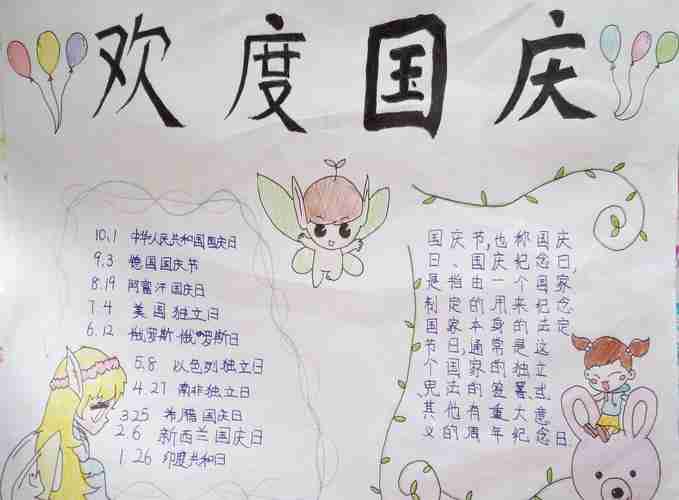 欢度国庆
10.1 中华人民共和国国庆日
9.3 德国国庆节
8.19 阿富汗国庆日
7.4 美国独立日
6.12 俄罗斯俄罗斯日
5.8 以色列独立日
4.27 南非独立日
3.25 希腊国庆日
2.6 新西兰国庆日
1.26 印度共和日
国庆节,也称国庆
日、国庆纪念日,
是指由一个国家
制定的用来纪念
国家本身的法定
节日,通常是这
个国家的独立、
宪法的签署、或
其他有重大意
义的周年纪念日.